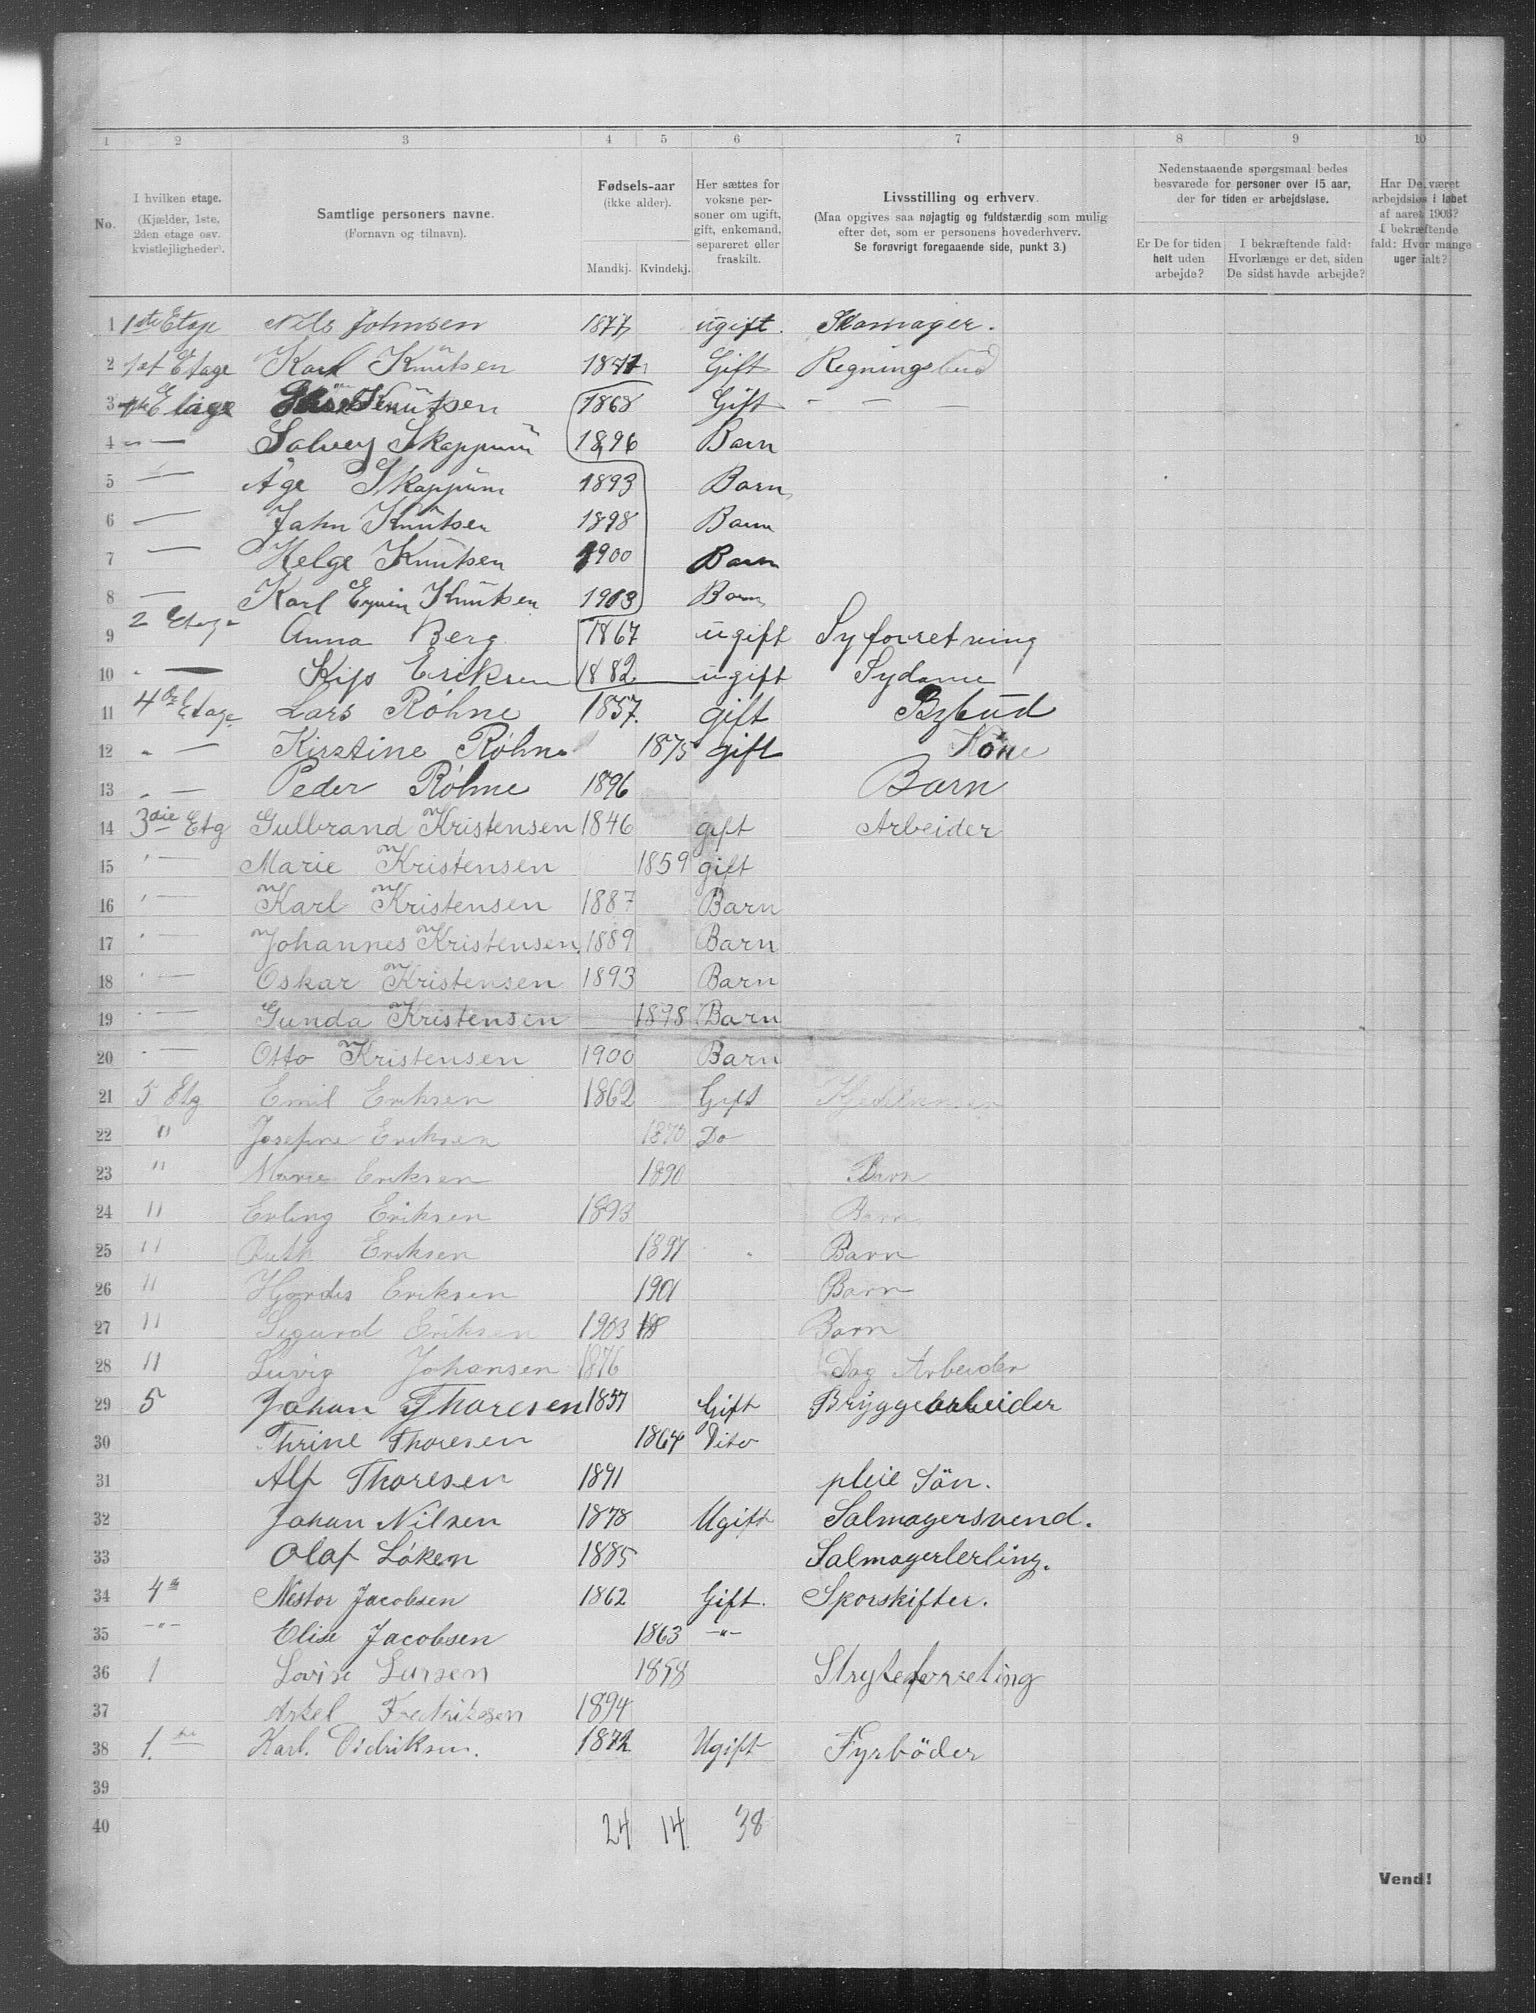 1 2 3 4 5 6 7 8 9 10
No.
I hvilken etage.
(Kjælder, 1ste, 2den etage osv. kvistlejligheder).
Samtlige personers navne.
(Fornavn og tilnavn).
Fødsels-aar
(ikke alder).
Mandkj. Kvindekj.
Her sættes for voksne personer om ugift, gift, enkemand, separeret eller fraskilt.
Livsstilling og erhverv.
(Maa opgives saa nøjagtig og fuldstændig som mulig efter det, som er personens hovederhverv.
Se forøvrigt foregaaende side, punkt 3.)
Nedenstaaende spørgsmaal bedes besvarede for personer over 15 aar, der for tiden er arbejdsløse.
Er De for tiden helt uden arbejde?
I bekræftende fald: Hvorlænge er det, siden De sidst havde arbejde?
Har De været arbejdsløs i løbet af aaret 1903? I bekræftende fald: Hvor mange uger ialt?
1 1ste Etage Nils Johnsen 1877 ugift. Skomager.
2 1st Etage Karl Knutsen 1871 Gift Regningsbud
3 1ste Etage Knutsen 1868 Gift — — —
4 " — Solvey Skappum 1896 Barn
5 — Åge Skappum 1893 Barn
6 — John Knutsen 1898 Barn
7 — Helge Knutsen 1900 Barn
8 — Karl Knutsen 1903 Barn
9 2 Etage Anna Berg 1867 ugift Syforretning
10 " — Eriksen 1882 ugift Sydame
11 4de Etage Lars Röhne 1857. gift Bybud
12 " — Kirstine Röhne 1875 gift Kone
13 " — Peder Röhne 1896 Barn
14 3die Etg Gulbrand Kristensen 1846 gift Arbeider
15 " — Marie Kristensen 1859 gift
16 " — Karl Kristensen 1887 Barn
17 " — Johannes Kristensen 1889 Barn
18 " — Oskar Kristensen 1893 Barn
19 " — Gunda Kristensen 1898 Barn
20 " — Otto Kristensen 1900 Barn
21 5 Etg Emil Eriksen 1862 Gift
22 " Josefine Eriksen 1870 Do
23 " Marie Eriksen 1890 Barn
24 " Erling Eriksen 1893 Barn
25 " Ruth Eriksen 1897 Barn
26 " Hjordis Eriksen 1901 Barn
27 " Sigurd Eriksen 1903 18 Barn
28 " Luvig Johansen 1876 Dag Arbeider
29 5 Johan Thoresen 1857 Gift Bryggearbeider
30 Thrine Thoresen 1864 Dito
31 Alf Thoresen 1891 pleie Sön.
32 Johan Nilsen 1878 Ugift Salmagersvend.
33 Olaf Löken 1885 Salmagerlerling.
34 4de Nestor Jacobsen 1862 Gift. Sporskifter.
35 -"- Elise Jacobsen 1863 -"-
36 1 Lovise Larsen 1858 Strykeforreting
37 Axel Fredriksen 1894
38 1.ste Karl. Didriksen. 1872 Ugift Fyrböder
39
40 24 14 38
Vend!